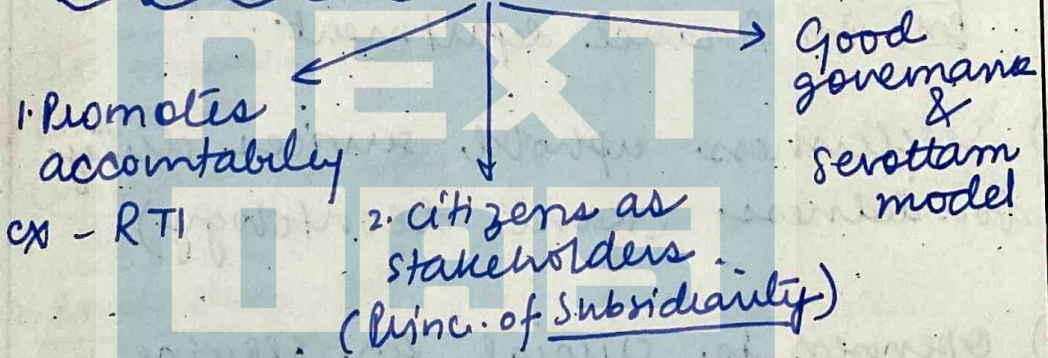 1. Promotes
accountability
ex - RTI
2. Citizens as
stakeholders.
(Princ. of Subsidiarity)
Good
governance
&
Sevottam
model
NEXT
IAS